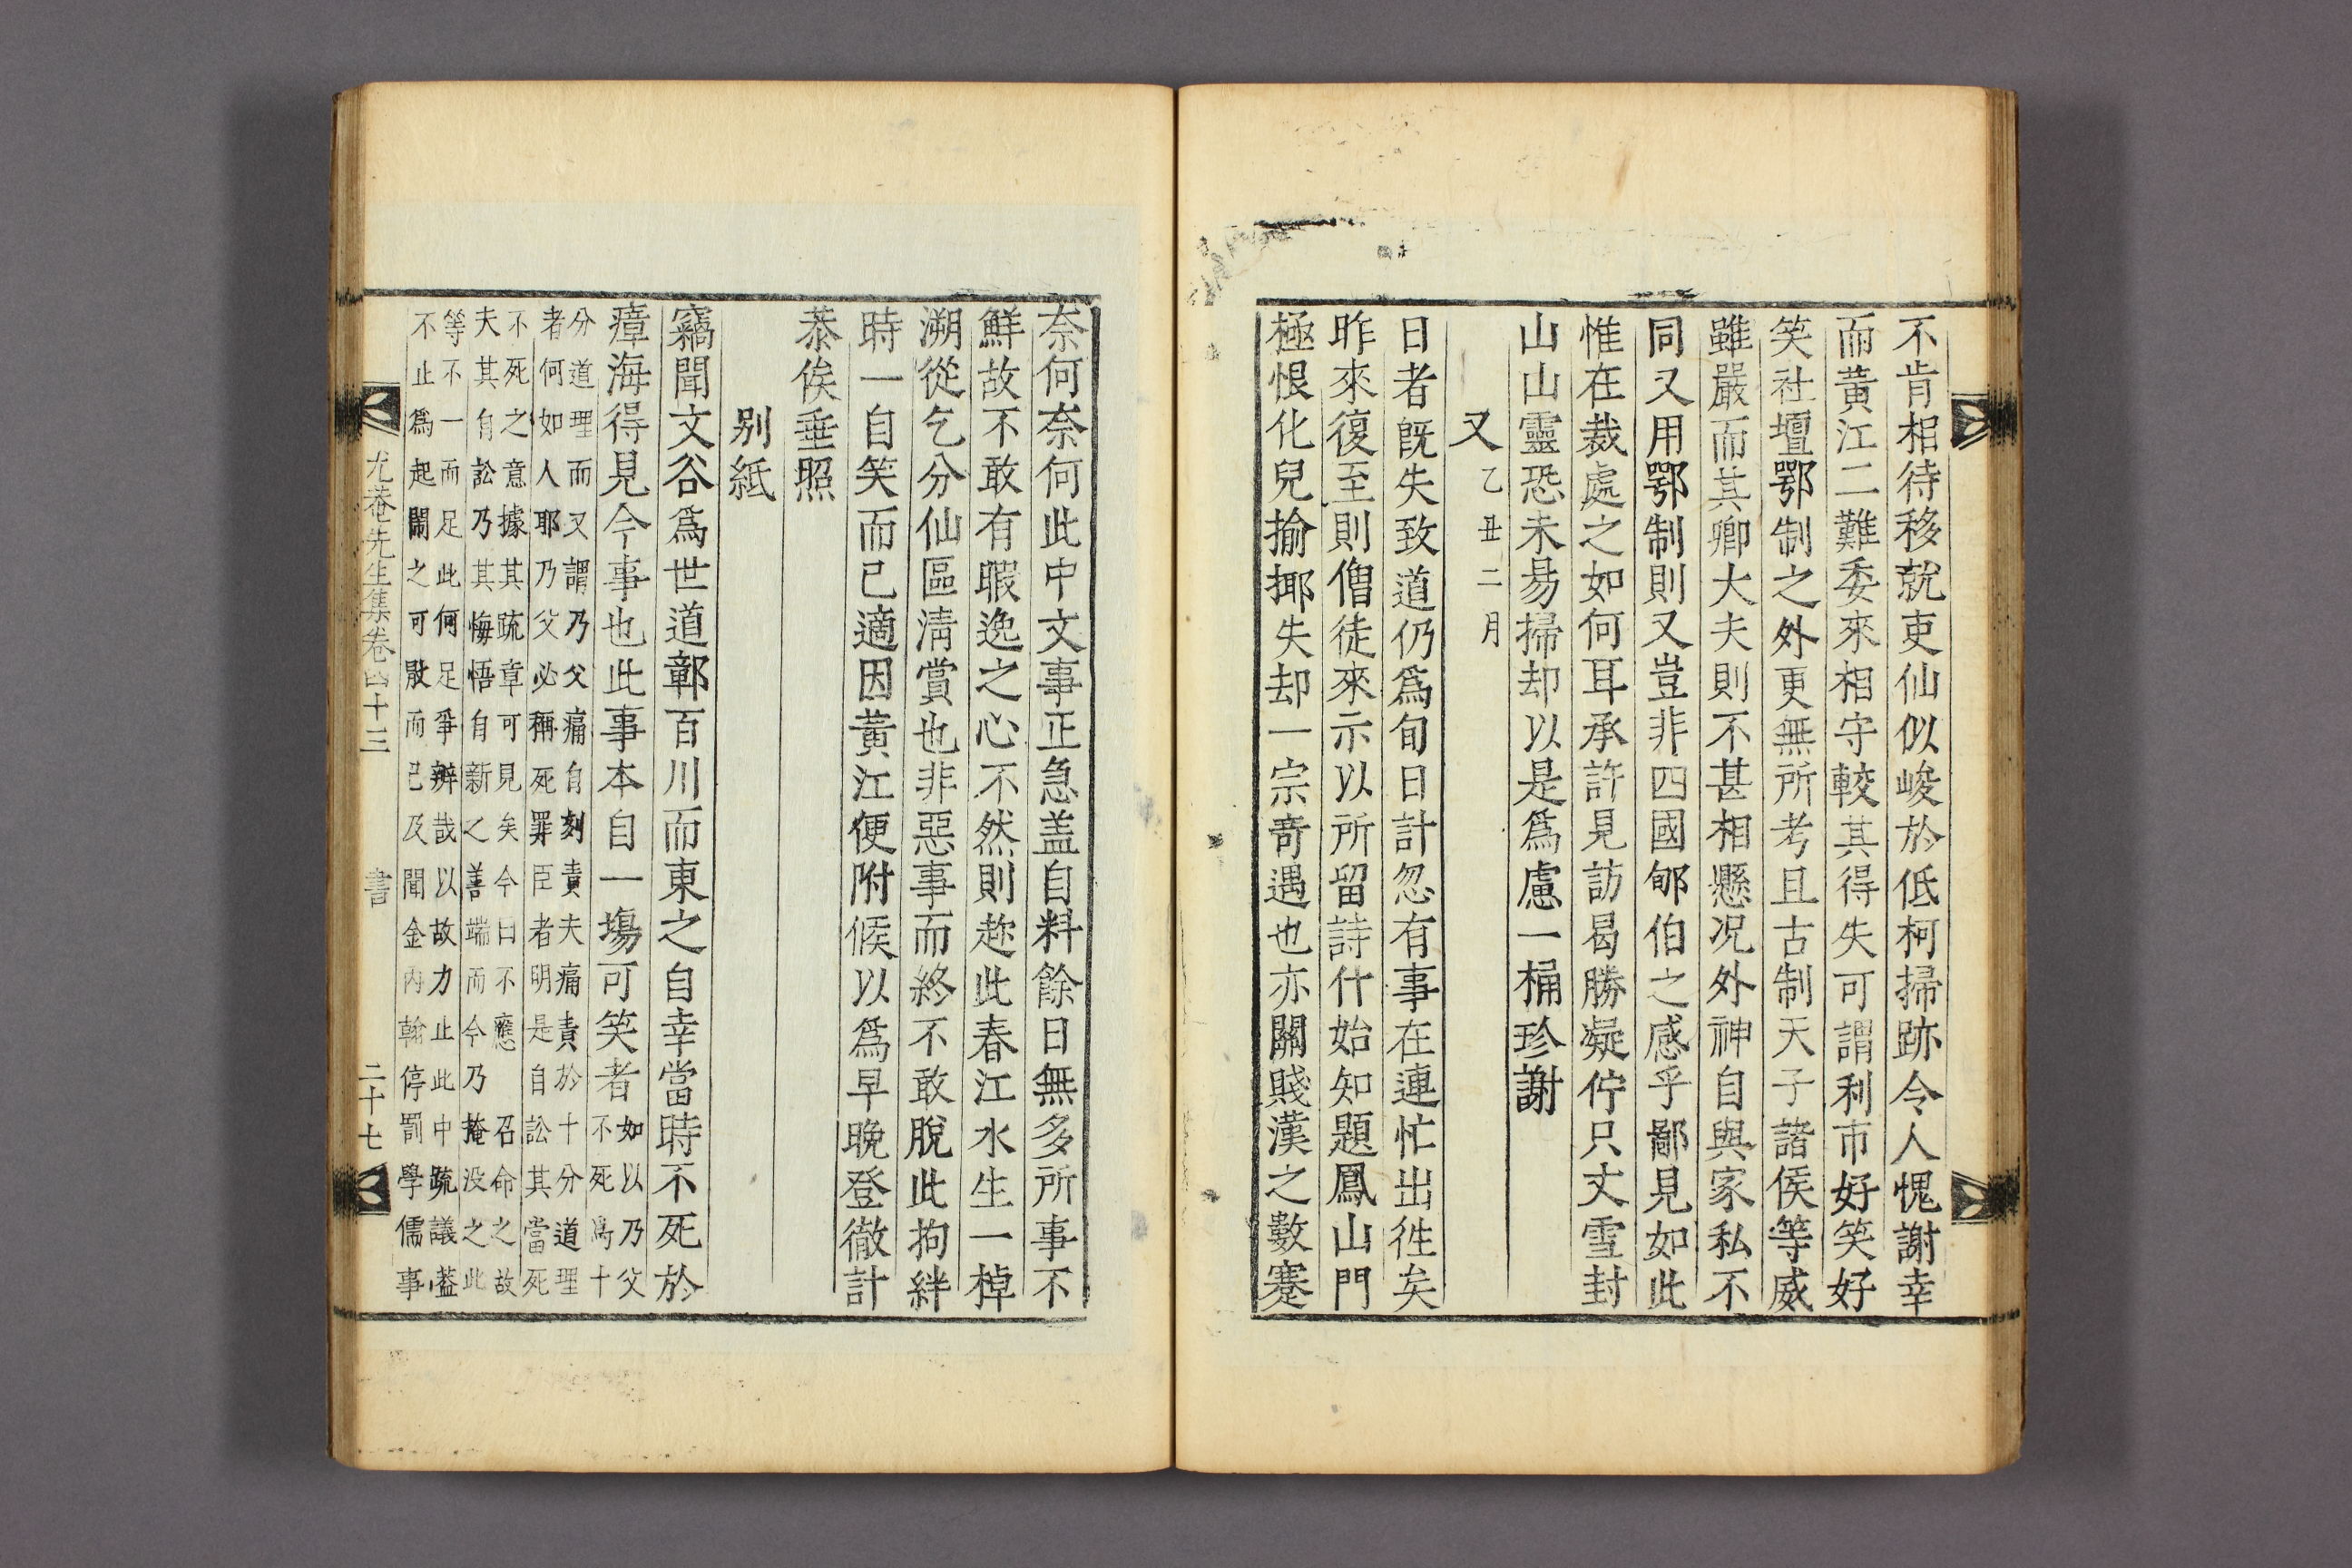 不肯相待移就吏仙似峻於低柯掃跡令人愧謝幸
而黃江二難委來相守較其得失可謂利市好笑好
笑社壇鄂制之外更無所考且古制天子諸侯等威
雖嚴而其卿大夫則不甚相懸况外神自與家私不
同又用鄂制則又豈非四國郇伯之感乎鄙見如此
惟在裁處之如何耳承許見訪曷勝凝佇只丈雪封
山山靈恐未易掃却以是爲慮一桶珍謝
又乙丑二月
日者旣失致道仍爲旬日計忽有事在連忙出徃矣
昨來復至則僧徒來示以所留詩什始知題鳳山門
極恨化兒揄揶失却一宗奇遇也亦關賤漢之數蹇
奈何奈何此中文事正急盖自料餘日無多所事不
鮮故不敢有暇逸之心不然則趂此春江水生一棹
溯從乞分仙區淸賞也非惡事而終不敢脫此拘絆
時一自笑而已適因黃江便附候以爲早晩登徹計
叅俟垂照
別紙
竊聞文谷爲世道鄣百川而東之自幸當時不死於
瘴海得見今事也此事本自一塲可笑者如以乃父
不死爲十
分道理而又謂乃父痛自刻責夫痛責於十分道理
者何如人耶乃父必稱死罪臣者明是自訟其當死
不死之意據其疏章可見矣今日不應召命之故
夫其自訟乃其悔悟自新之善端而今乃掩没之此
等不一而足此何足爭辨哉以故力止此中疏議盖
不止爲起鬧之可厭而已及聞金內翰停罰學儒事
尤菴先生集卷四十三
書
二十七